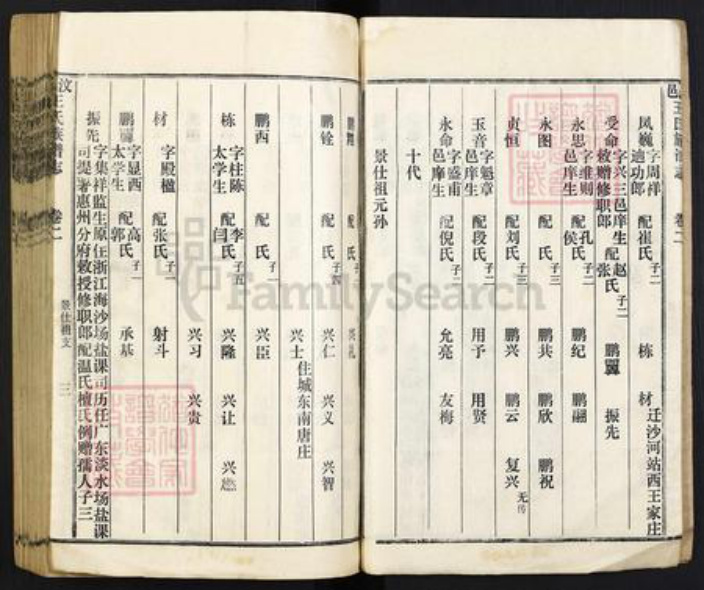 凤巍 字周祥 迪功郎 配崔氏 子二 栋 材 迁沙河站西王家庄
受命 字兴三 邑庠生 敕赠修职郎 配赵氏 张氏 子二 鹏翼 振先
永思 字维则 邑庠生 配孔氏 侯氏 子二 鹏纪 鹏翮
永图 配 氏 子三 鹏共 鹏欣 鹏祝
贞恒 配刘氏 子三 鹏兴 鹏云 复兴 无传
玉音 字魁章 邑庠生 配段氏 子二 用予 用贤
永命 字盛甫 邑庠生 配倪氏 子二 允亮 友梅
十代
景仕祖元孙
鹏翔 配 氏 子一 兴礼
鹏铨 配 氏 子四 兴仁 兴义 兴智
兴士 住城东南唐庄
鹏西 配 氏 子一 兴臣
栋 字柱陈 太学生 配李氏 闫氏 子五 兴隆 兴让
兴习 兴贵
材 字殿楹 配张氏 子一 射斗
鹏翼 字显西 太学生 配高氏 郭氏 子一 承基
振先 字集祥 监生 原任浙江海沙场盐课司 历任广东淡水场盐课
司提 署惠州分府 敕授修职郎 配温氏 檀氏 例赠孺人 子三
汶 王氏族谱志 卷二 景仕祖支 三
邑 王氏族谱志 卷二
FamilySearch